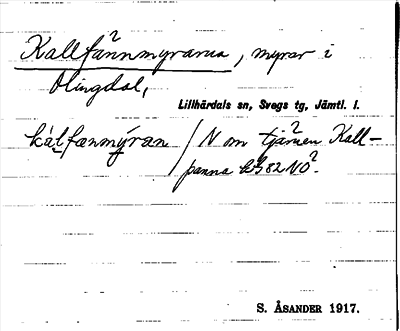 Kallfännmyrarna, myrar i
Olingdal,
Lillhärdals sn, Svegs tg, Jämtl. l.
kàl̥fanmýran / N om tjärnen Kall-
panna 82 NO.
S. ÅSANDER 1917.